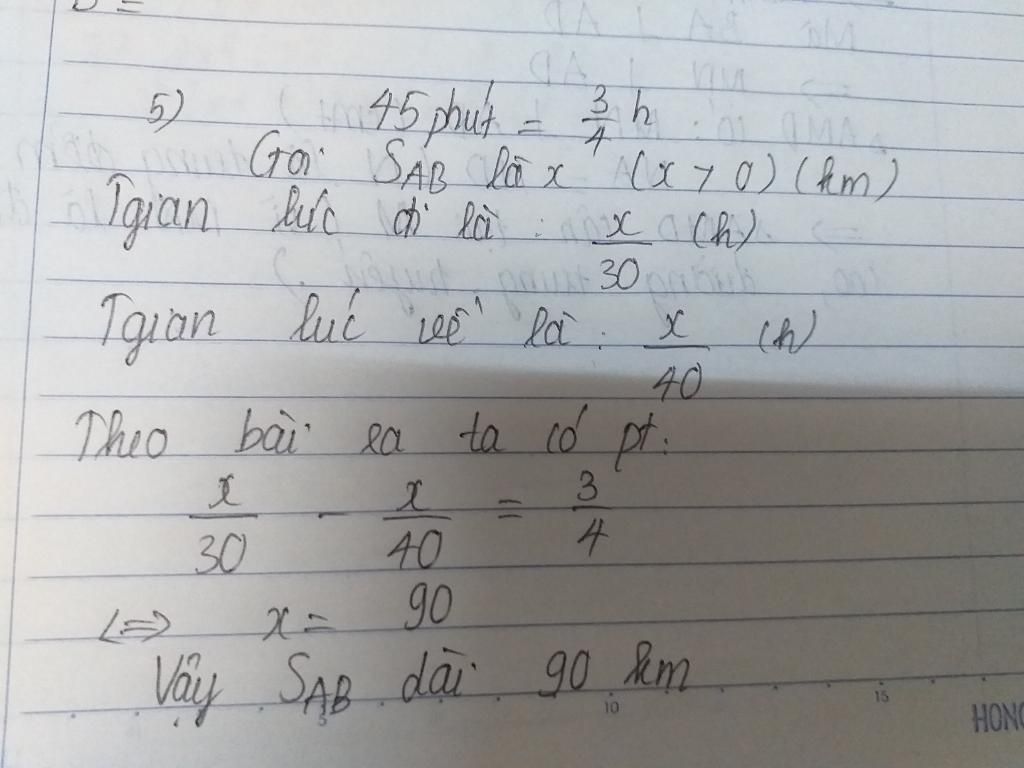 5) 45 phút = 3/4 h
Gọi SAB là x (x > 0) (km)
Tgian lúc đi là : x/30 (h)
Tgian lúc về là : x/40 (h)
Theo bài ra ta có pt:
x/30 - x/40 = 3/4
<=> x = 90
Vậy SAB dài 90 km
5 10 15
HONG